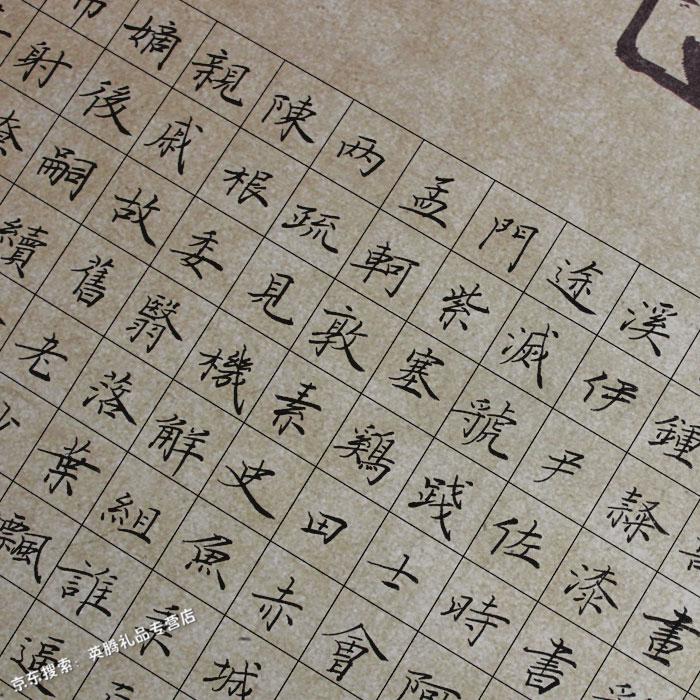 鍾隸漆書
溪伊尹佐時阿
途滅虢踐土會
門紫塞鷄田赤城
孟軻敦素史魚秉
两疏見機解組誰逼
陳根委翳落葉飄
親戚故舊老少
嫡後嗣續
布射
奏
畫
京东搜索：英腾礼品专营店